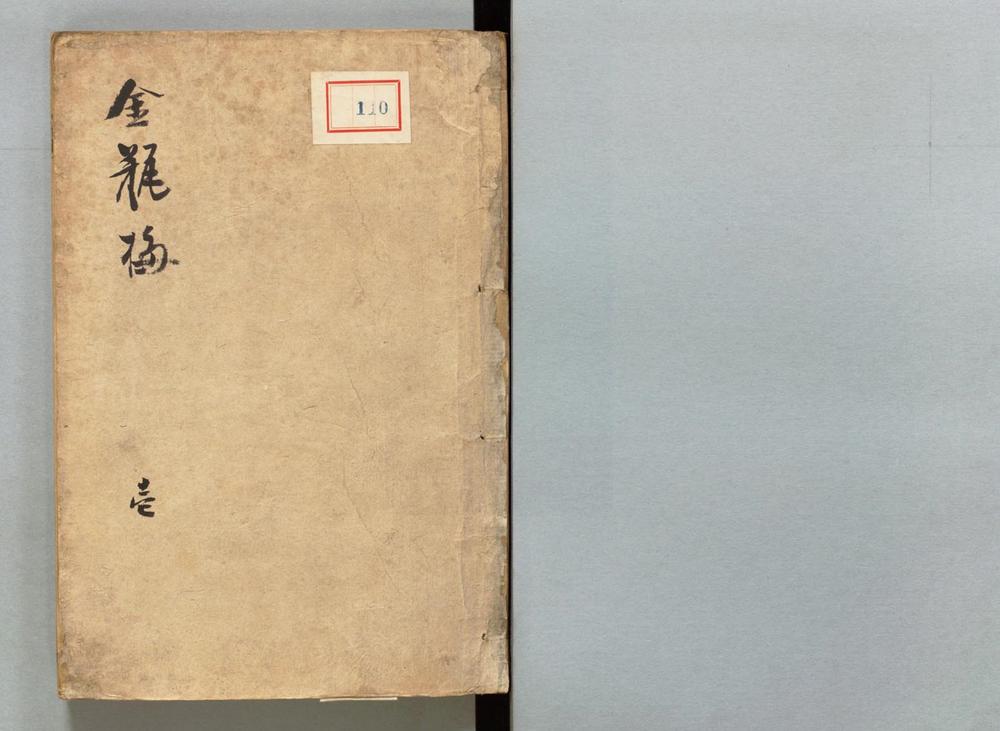 金瓶梅
壱
110